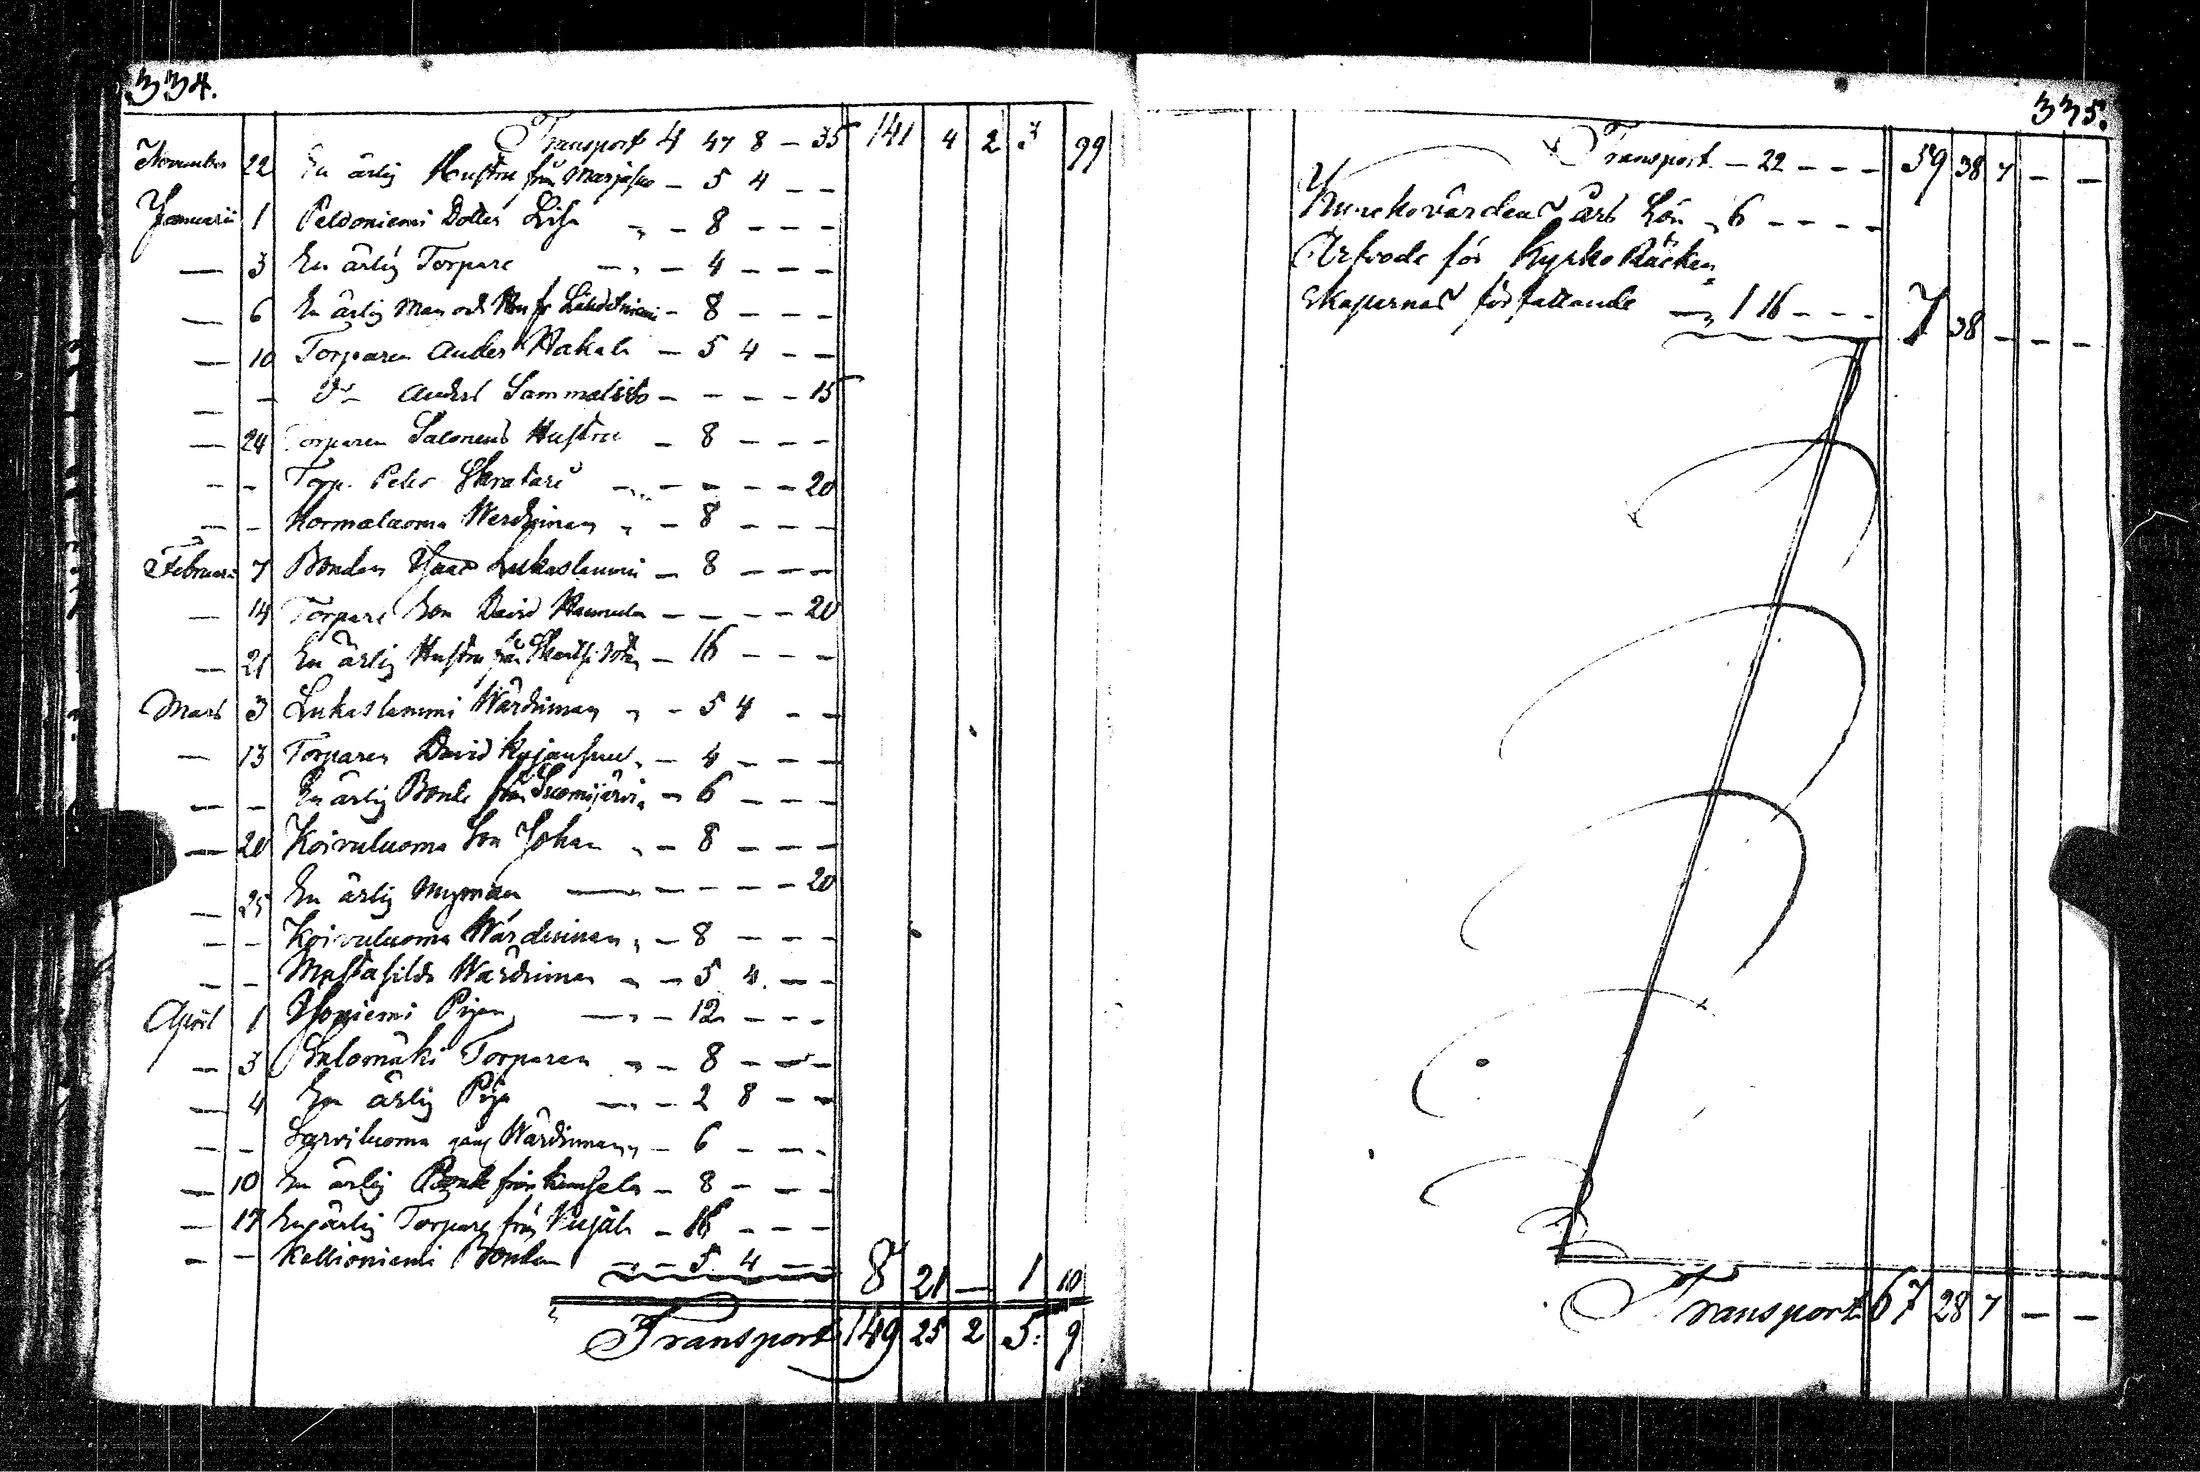 334.
Transport 4 47 8 – 35 141 4 2 3 99
November 22 En ärlig Hustru från Marjasuo – 5 4 – –
Januarii 1 Peldoniemi Dotter Lisa „ – 8 – – –
— 3 En ärlig Torpare – „ – 4 – – –
— 6 En ärlig Man och Hu fr – 8 – – –
— 10 Torparen Anders Hakala – 5 4 – –
— – do Anders Sammalisto – – – – 15
— 24 Torparen Salonens Hustru – 8 – – –
– – Torp. Peter – „ – – – – 20
– – Kormaluoma Werdinnan „ – 8 – – –
Februari 7 Bonden Isaac Lukaslammi – 8 – – –
— 14 Torpare Son David Hannula – – – – 20
— 21 En ärlig Hustru från – 16 – – –
Mars 3 Lukaslammi Wärdinnan „ – 5 4 – –
— 13 Torparen David Kujansuu „ – 4 – – –
— – En ärlig Bonde från Suomijärvi „ – 6 – – –
— 20 Koivuluoma Son Johan „ – 8 – – –
— 25 En ärlig Nyman — – – – – 20
– – Koivuluoma Wärdinnan „ – 8 – – –
– – Mustasilda Wärdinnan „ – 5 4. – –
April 1 Isoniemi Pigan — „ – 12 – – –
— 3 Salomäki Torparen „ – 8 – – –
— 4 En ärlig Piga — „ – 2 8 – –
– – Sarviluoma Wärdinnan „ – 6 – – –
— 10 En ärlig Bonde från – 8 – – –
— 17 En ärlig Torpare från – 16 – – –
– – Kallioniemi Bonden „ – 5 4 – – 8 21 – 1 10
Transport 149 25 2 5: 9
335.
Transport – 22 – – – 59 38 7 – –
Kyrckovärdens års Lön „ 6 – – – –
Arfvode för Kyrko Räcken=
skapernas författande – „ 1 16 – – – 7 38 – – –
Transport 67 28 7 – –